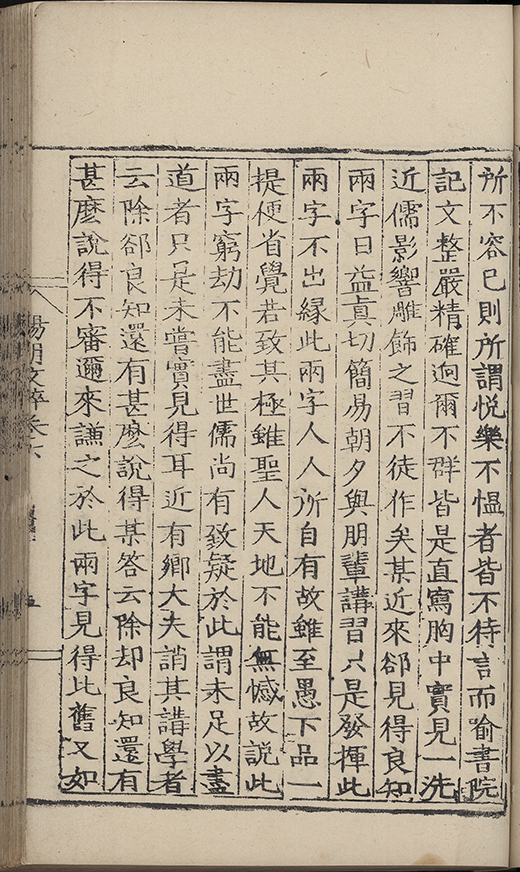 所不容已則所謂悅樂不慍者皆不待言而喻書院
記文整嚴精確迥爾不群皆是直寫胸中實見一洗
近儒影響雕飾之習不徒作矣某近來郤見得良知
兩字日益眞切簡易朝夕與朋輩講習只是發揮此
兩字不出緣此兩字人人所自有故雖至愚下品一
提便省覺若致其極雖聖人天地不能無憾故説此
兩字窮劫不能盡世儒尚有致疑於此謂未足以盡
道者只是未嘗實見得耳近有鄉大夫誚其講學者
云除郤良知還有甚麽說得某答云除却良知還有
甚麽說得不審邇來謙之於此兩字見得比舊又如
陽明文粹卷六
五